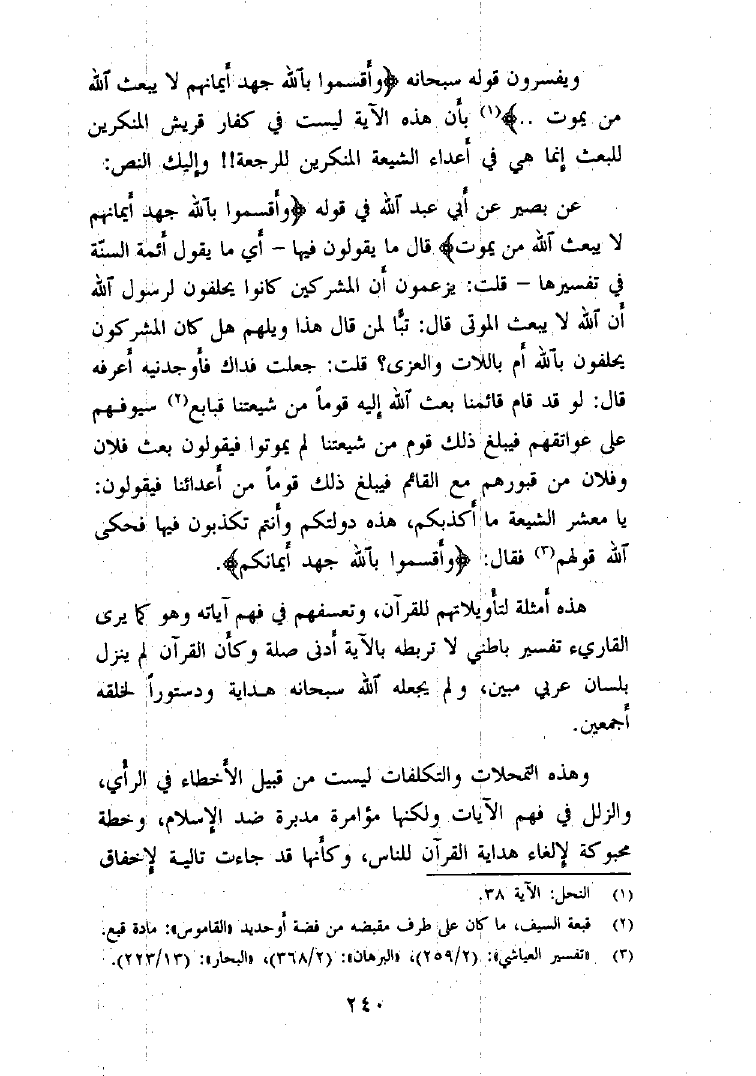 ويفسرون قوله سبحانه ﴿وأقسموا بٱلله جهد أيمانهم لا يبعث ٱلله
من يموت ..﴾(١) بأن هذه الآية ليست في كفار قريش المنكرين
للبعث إنما هي في أعداء الشيعة المنكرين للرجعة!! وإليك النص:
عن بصير عن أبي عبد ٱلله في قوله ﴿وأقسموا بٱلله جهد أيمانهم
لا يبعث ٱلله من يموت﴾ قال ما يقولون فيها - أي ما يقول أئمة السنّة
في تفسيرها - قلت: يزعمون أن المشركين كانوا يحلفون لرسول ٱلله
أن ٱلله لا يبعث الموتى قال: تبًّا لمن قال هذا ويلهم هل كان المشركون
يحلفون بٱلله أم باللات والعزى؟ قلت: جعلت فداك فأوجدنيه أعرفه
قال: لو قد قام قائمنا بعث ٱلله إليه قوماً من شيعتنا قبابع(٢) سيوفهم
على عواتقهم فيبلغ ذلك قوم من شيعتنا لم يموتوا فيقولون بعث فلان
وفلان من قبورهم مع القائم فيبلغ ذلك قوماً من أعدائنا فيقولون:
يا معشر الشيعة ما أكذبكم، هذه دولتكم وأنتم تكذبون فيها فحكى
ٱلله قولهم(٣) فقال: ﴿وأقسموا بٱلله جهد أيمانكم﴾.
هذه أمثلة لتأويلاتهم للقرآن، وتعسفهم في فهم آياته وهو كما يرى
القاريء تفسير باطني لا تربطه بالآية أدنى صلة وكأن القرآن لم ينزل
بلسان عربي مبين، ولم يجعله ٱلله سبحانه هداية ودستوراً لخلقه
أجمعين.
وهذه التمحلات والتكلفات ليست من قبيل الأخطاء في الرأي،
والزلل في فهم الآيات ولكنها مؤامرة مدبرة ضد الإسلام، وخطة
محبوكة لإلغاء هداية القرآن للناس، وكأنها قد جاءت تالية لإخفاق
(١) النحل: الآية ٣٨.
(٢) قبعة السيف، ما كان على طرف مقبضه من فضة أوحديد «القاموس»: مادة قبع.
(٣) «تفسير العياشي»: (٢٥٩/٢)، «البرهان»: (٣٦٨/٢)، «البحار»: (٢٢٣/١٣).
٢٤٠